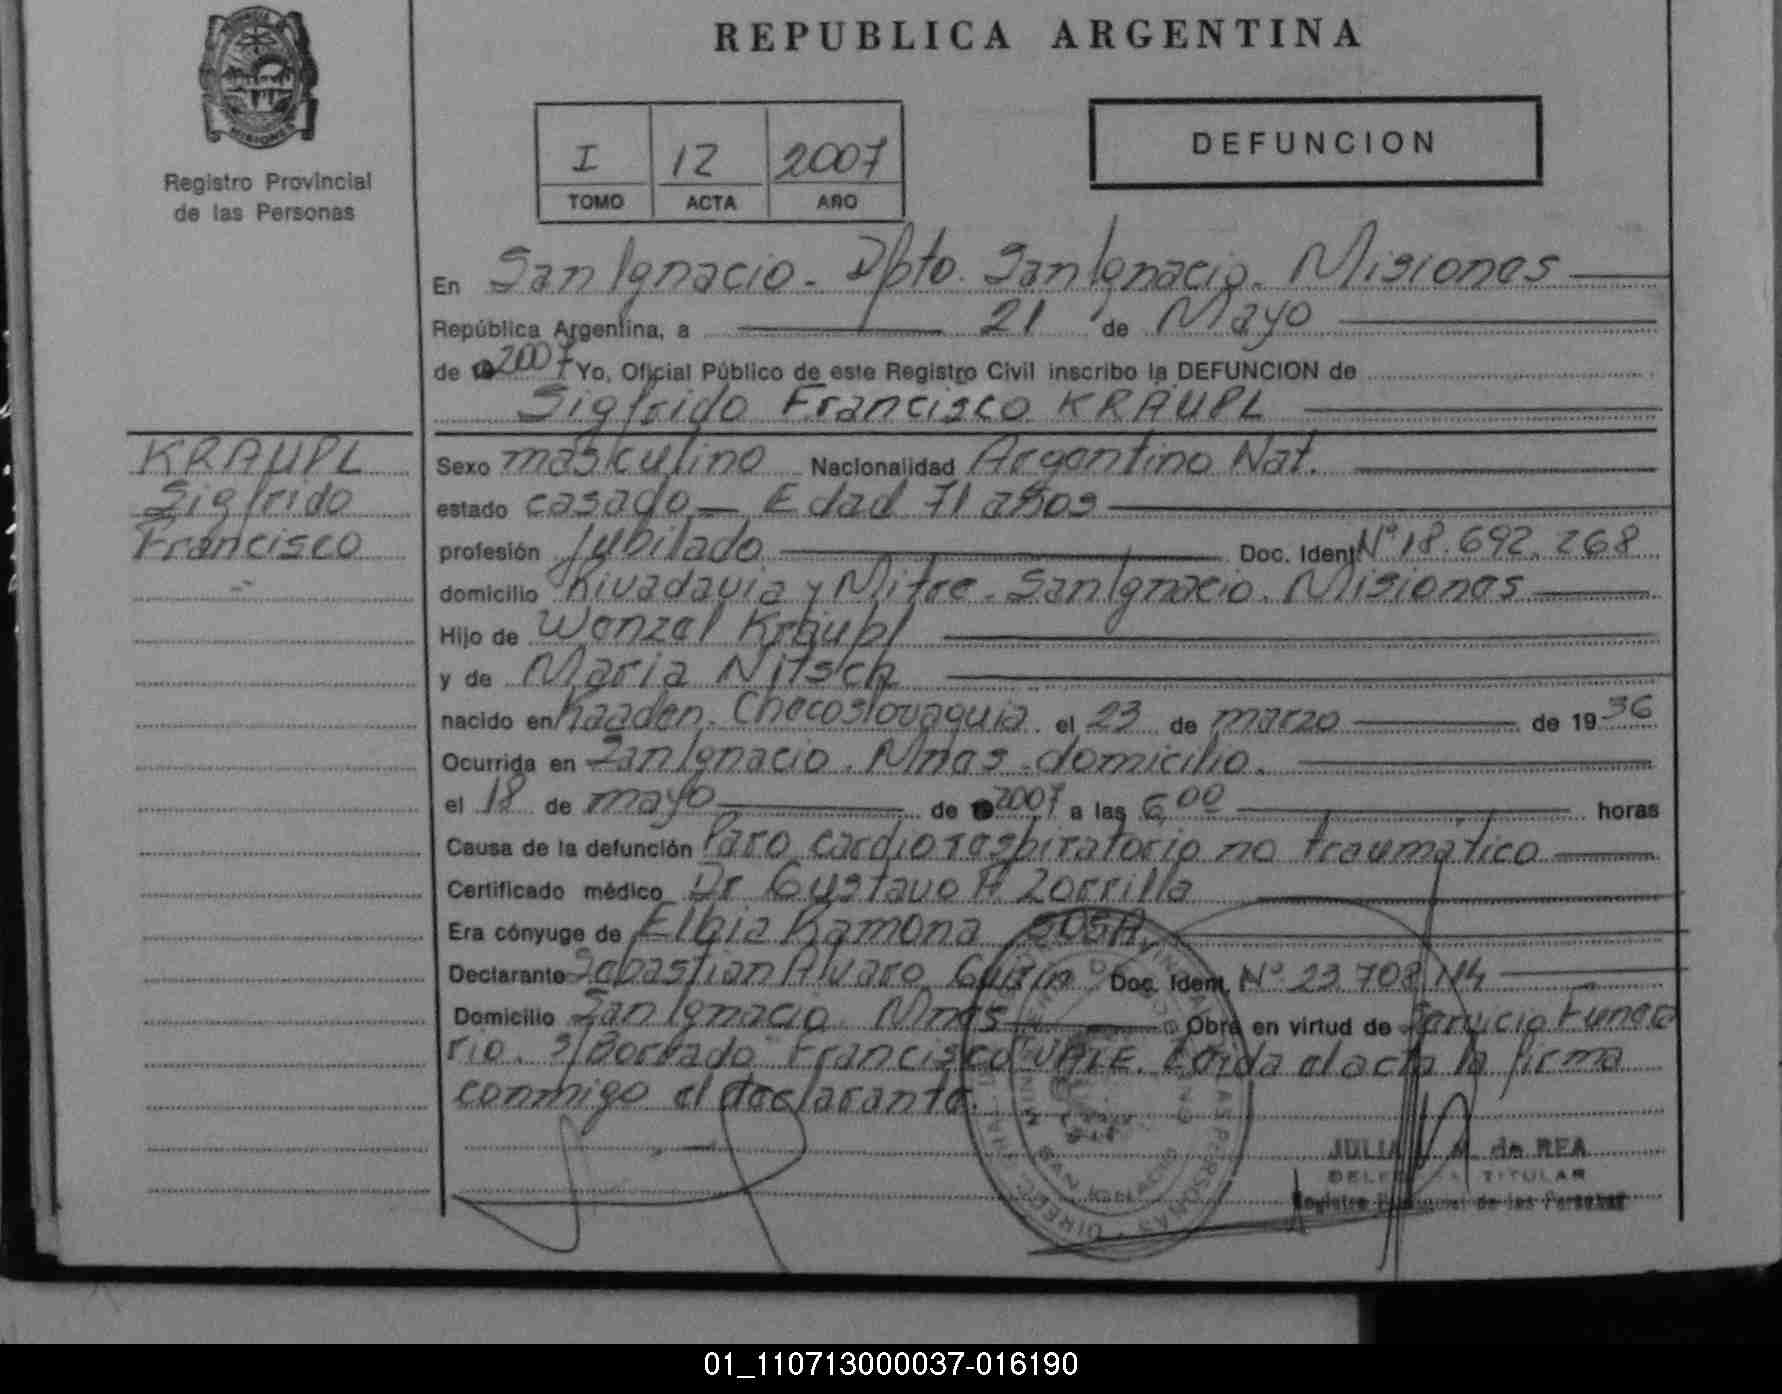 REPUBLICA ARGENTINA
MISIONES
Registro Provincial
de las Personas
I 12 2007
TOMO ACTA AÑO
DEFUNCION
En San Ignacio - Dpto. San Ignacio. Misiones
República Argentina, a 21 de Mayo
de 2007 Yo, Oficial Público de este Registro Civil inscribo la DEFUNCION de
Sigfrido Francisco KRAUPL
KRAUPL
Sigfrido
Francisco
Sexo masculino Nacionalidad Argentino Nat.
estado casado - Edad 71 años
profesión Jubilado Doc. Ident Nº 18.692.268
domicilio Rivadavia y Mitre - San Ignacio. Misiones
Hijo de Wenzel Kraupl
y de Maria Nitsch
nacido en Kaaden. Checoslovaquia. el 23 de marzo de 1936
Ocurrida en San Ignacio. Mnes. domicilio.
el 18 de mayo de 2007 a las 6,00 horas
Causa de la defunción Paro cardiorespiratorio no traumático
Certificado médico Dr Gustavo A. Zorrilla
Era cónyuge de Elbia Ramona SOSA
Declarante Sebastian Alvaro Doc. Ident. Nº 23.708.114
Domicilio San Ignacio. Mnes Obra en virtud de Servicio Funera
rio. S/Borrado Francisco VALE. Leida el acta la firma
conmigo el declarante.
SAN IGNACIO
JULIA de REA
TITULAR
Registro Provincial de las Personas
01_110713000037-016190